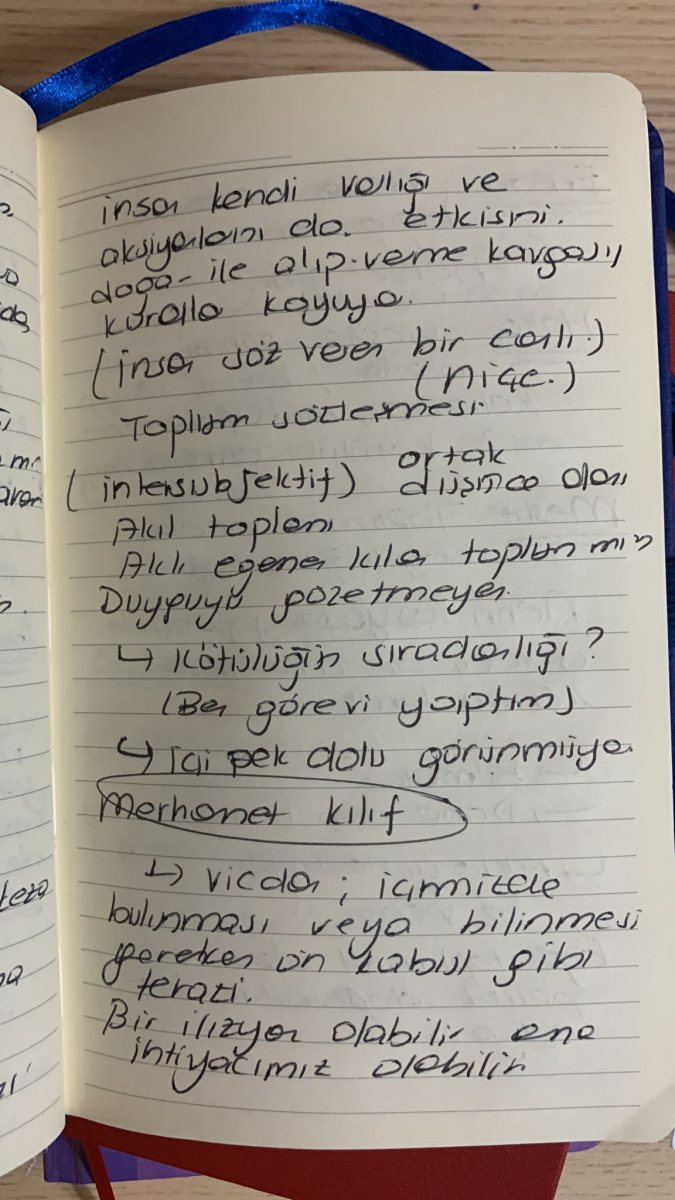 insan kendi varlığı ve
aksiyonlarını da. etkisini.
doğa- ile alıp-verme kavgasıy
kuralla koyuyo.
(insan söz veren bir canlı.)
(Niçe.)
Toplum sözleşmesi.
(intersubjektif) ortak
düşünce alanı
Akıl toplanı
Aklı egemen kılan toplum mın
Duyguyu gözetmeyen.
↳ Kötülüğün sıradanlığı?
(Ben görevi yaptım)
↳ içi pek dolu görünmüyo
Merhamet kılıf
↳ vicdan ; içimizde
bulunması veya bilinmesi
gereken ön kabul gibi
terazi.
Bir ilizyon olabilir ama
ihtiyacımız olabilir